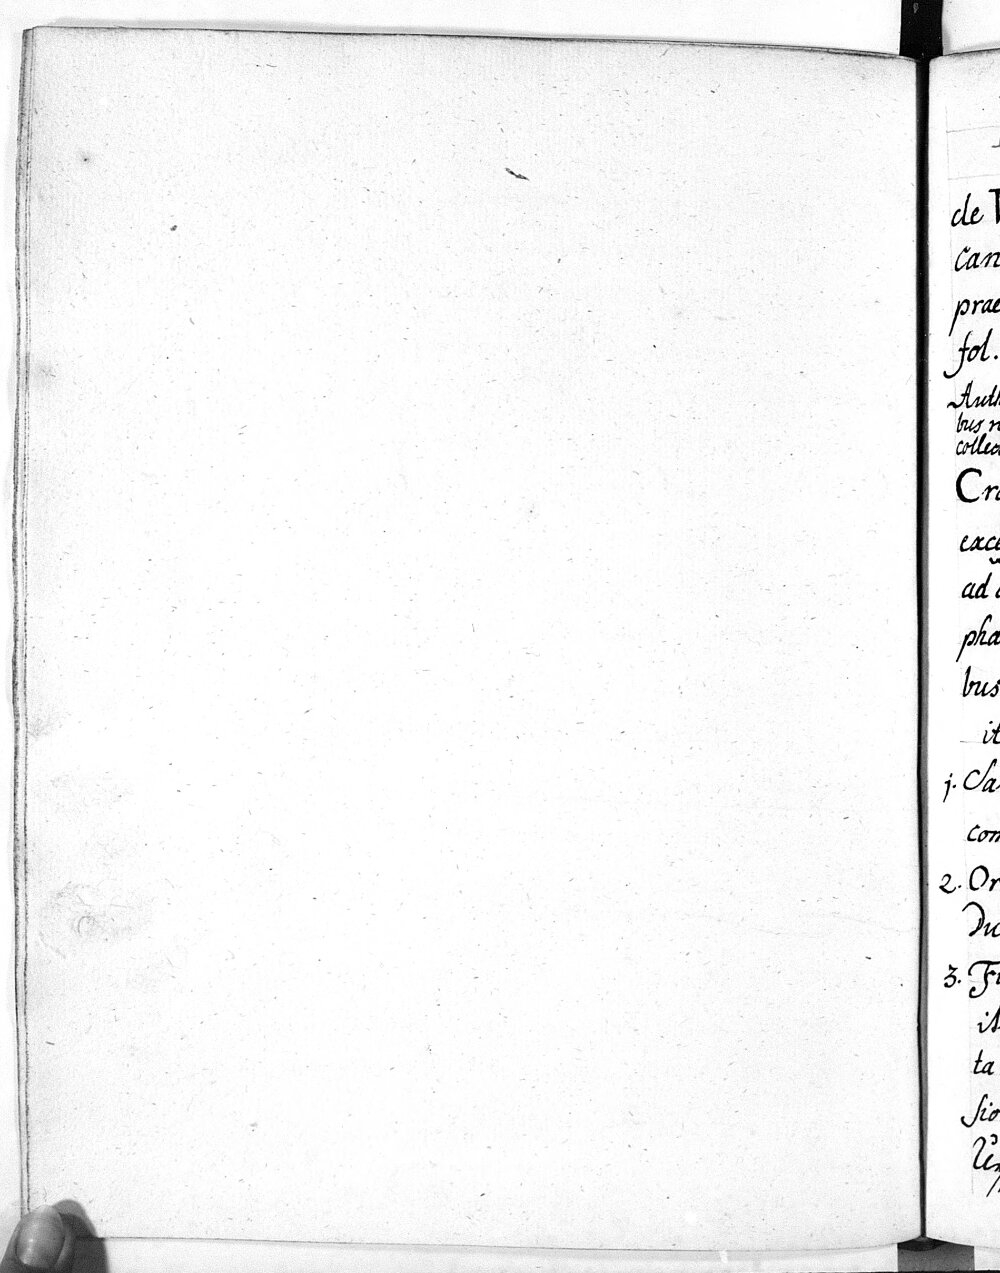 de
Can
prae
fol.
Auth
bus
collec
Cra
exce
ad
pha
bus
it
j. Sa
com
2. Or
Du
3. Fi
ta
sio